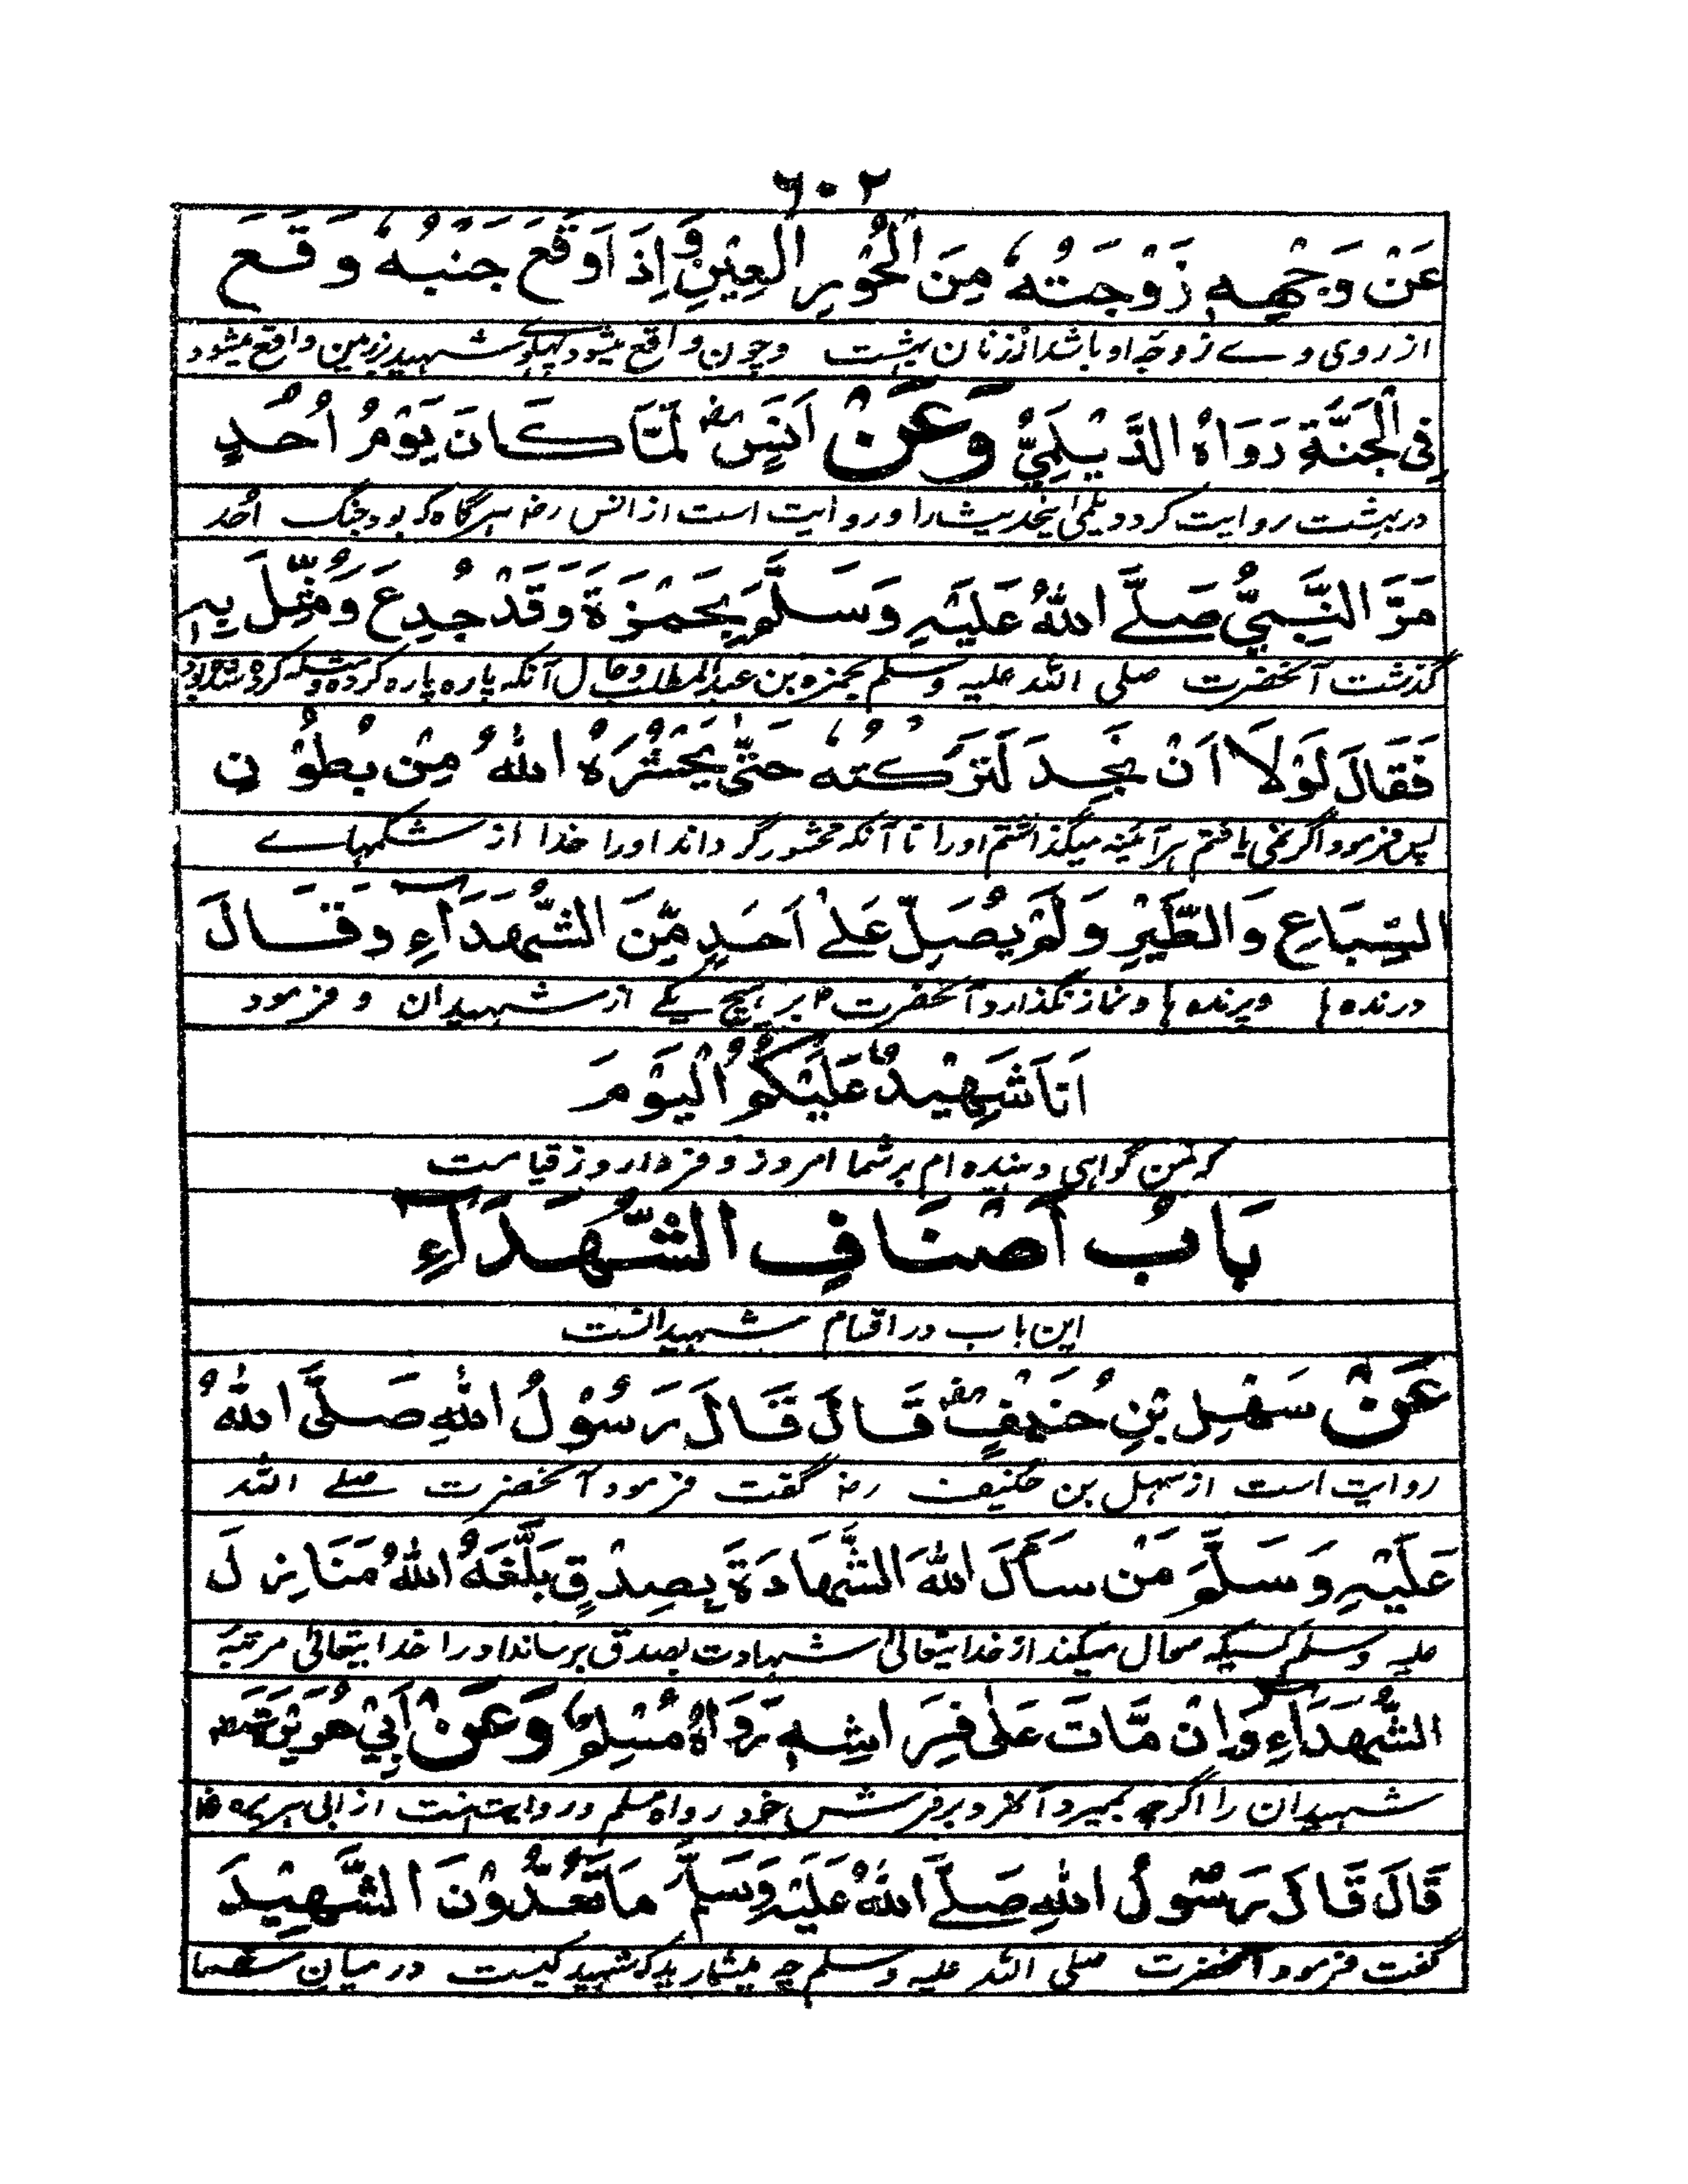 ٦٠٢
عَنْ وَجْهِهٖ زَوْجَتُهٗ مِنَ الْحُوْرِ الْعِيْنِ وَاِذَا وَقَعَ جَنْبُهٗ وَقَعَ
از روی وے زوجۀ او باشد از زنان بهشت وچون واقع میشود پهلوے شهید بزمین واقع میشود
فِى الْجَنَّةِ رَوَاهُ الدَّيْلَمِيُّ وَعَنْ اَنَسٍ رض لَمَّا كَانَ يَوْمُ اُحُدٍ
در بهشت روایت کرد دیلمی اینحدیث را و روایت است از انس رض هرگاه که بود جنگ اُحد
مَرَّ النَّبِيُّ صَلَّے اللهُ عَلَيْهِ وَسَلَّمَ بِحَمْزَةَ وَقَدْ جُدِعَ وَمُثِّلَ بِهٖ
گذشت آنحضرت صلی الله علیه وسلم بحمزه بن عبدالمطلب وحال آنکه پاره پاره کرده و مثله کرده شده بود
فَقَالَ لَوْلَا اَنْ نَجِدَ لَتَرَكْتُهٗ حَتّٰى يَحْشُرَهُ اللهُ مِنْ بُطُوْنِ
پس فرمود اگر نمی یافتم هرآئینه میگذاشتم اورا تا آنکه محشور گرداند اورا خدا از شکمهاے
السِّبَاعِ وَالطَّيْرِ وَلَمْ يُصَلِّ عَلٰے اَحَدٍ مِّنَ الشُّهَدَآءِ وَقَالَ
درنده ها وپرنده ها ونماز نگذارد آنحضرت ص بر هیچ یکے از شهیدان و فرمود
اَنَا شَهِيْدٌ عَلَيْكُمُ الْيَوْمَ
که من گواهی دهنده ام بر شما امروز و فردا روز قیامت
بَابُ اَصْنَافِ الشُّهَدَآءِ
این باب در اقسام شهیدانست
عَنْ سَهْلِ بْنِ حُنَيْفٍ رض قَالَ قَالَ رَسُوْلُ اللهِ صَلَّى اللهُ
روایت است از سهل بن حنیف رض گفت فرمود آنحضرت صلے الله
عَلَيْهِ وَسَلَّمَ مَنْ سَأَلَ اللهَ الشَّهَادَةَ بِصِدْقٍ بَلَّغَهُ اللهُ مَنَازِلَ
علیه وسلم کسیکه سوال میکند از خدایتعالیٰ شهادت بصدق برساند اورا خدایتعالیٰ مرتبۀ
الشُّهَدَآءِ وَاِنْ مَّاتَ عَلٰى فِرَاشِهٖ رَوَاهُ مُسْلِمٌ وَعَنْ اَبِيْ هُرَيْرَةَ رض
شهیدان را اگرچه بمیرد آن فرد بر فرش خود رواه مسلم و روایت است از ابی هریره رض
قَالَ قَالَ رَسُوْلُ اللهِ صَلَّے اللهُ عَلَيْهِ وَسَلَّمَ مَا تَعُدُّوْنَ الشَّهِيْدَ
گفت فرمود آنحضرت صلی الله علیه وسلم چه میشمارید که شهید کیست در میان شما